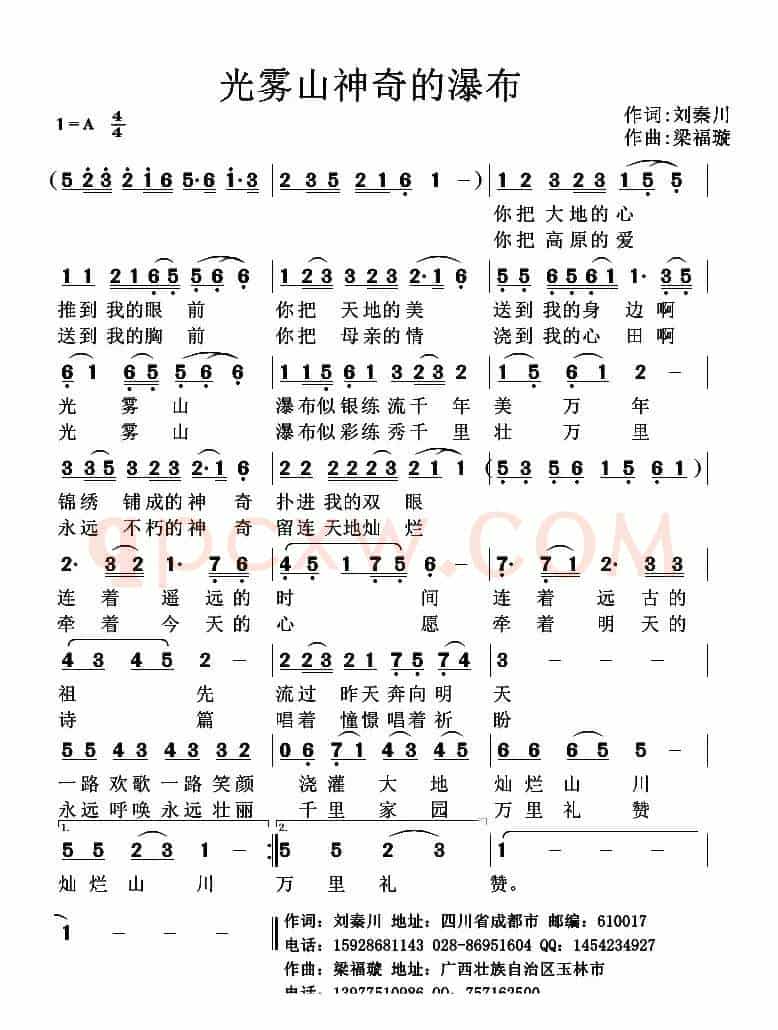 光雾山神奇的瀑布
1=A 4/4
作词:刘秦川
作曲:梁福璇
(5 2̇3̇ 2̇ 2̇16 5·6 1·3 | 235 2 2 1 6 1 -) | 12 323 23 1 5 5 |
你把 大地的心
你把 高原的爱
11 2165 5 6 6 | 123 323 2·1 6 | 55 6561 1· 35 |
推到 我的眼 前 你把 天地的美 送到 我的身 边啊
送到 我的胸 前 你把 母亲的情 浇到 我的心 田啊
61 65 5 5 6 | 2 23 21 3 323 | 1 5 6 1 2 - |
光 雾 山 瀑布似银练流千年 美 万 年
光 雾 山 瀑布似彩练秀千里 壮 万 里
3 35 323 2·1 6 | 22 2223 21 1 | (53 56 15 61) |
锦绣 铺成的神 奇 扑进 我的双 眼
永远 不朽的神 奇 留连 天地灿 烂
2· 32 1· 76 | 45 175 6 - | 7· 71 2· 33 |
连 着 遥 远的 时 间 连 着 远 古的
牵 着 今 天的 心 愿 牵 着 明 天的
43 45 2 - | 223 23 1 75 74 | 3 - - - |
祖 先 流过 昨天奔向明 天
诗 篇 唱着 憧憬唱着祈 盼
55 43 43 32 | 06 71 43 45 | 66 65 5 - |
一路 欢歌 一路 笑颜 浇灌 大 地 灿烂 山 川
永远 呼唤 永远 壮丽 千里 家 园 万里 礼 赞
1. 2.
55 23 1 - :| 5 5 2 3 | 1 - - - |
灿烂 山 川 万 里 礼 赞。
1 - - - ‖
作词: 刘秦川 地址: 四川省成都市 邮编: 610017
电话: 15928681143 028-86951604 QQ: 1454234927
作曲: 梁福璇 地址: 广西壮族自治区玉林市
电话: 13977510986 QQ: 757162500
qpcxw.COM